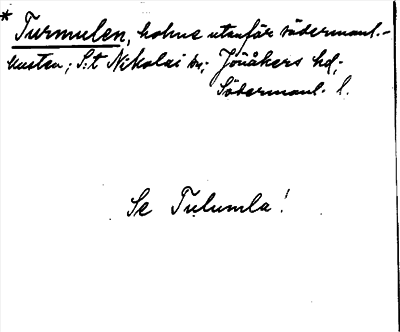 * Turmulen, holme utanför södermanl.-
kusten; S:t Nikolai sn; Jönåkers hd;
Södermanl. l.
Se Tulumla!